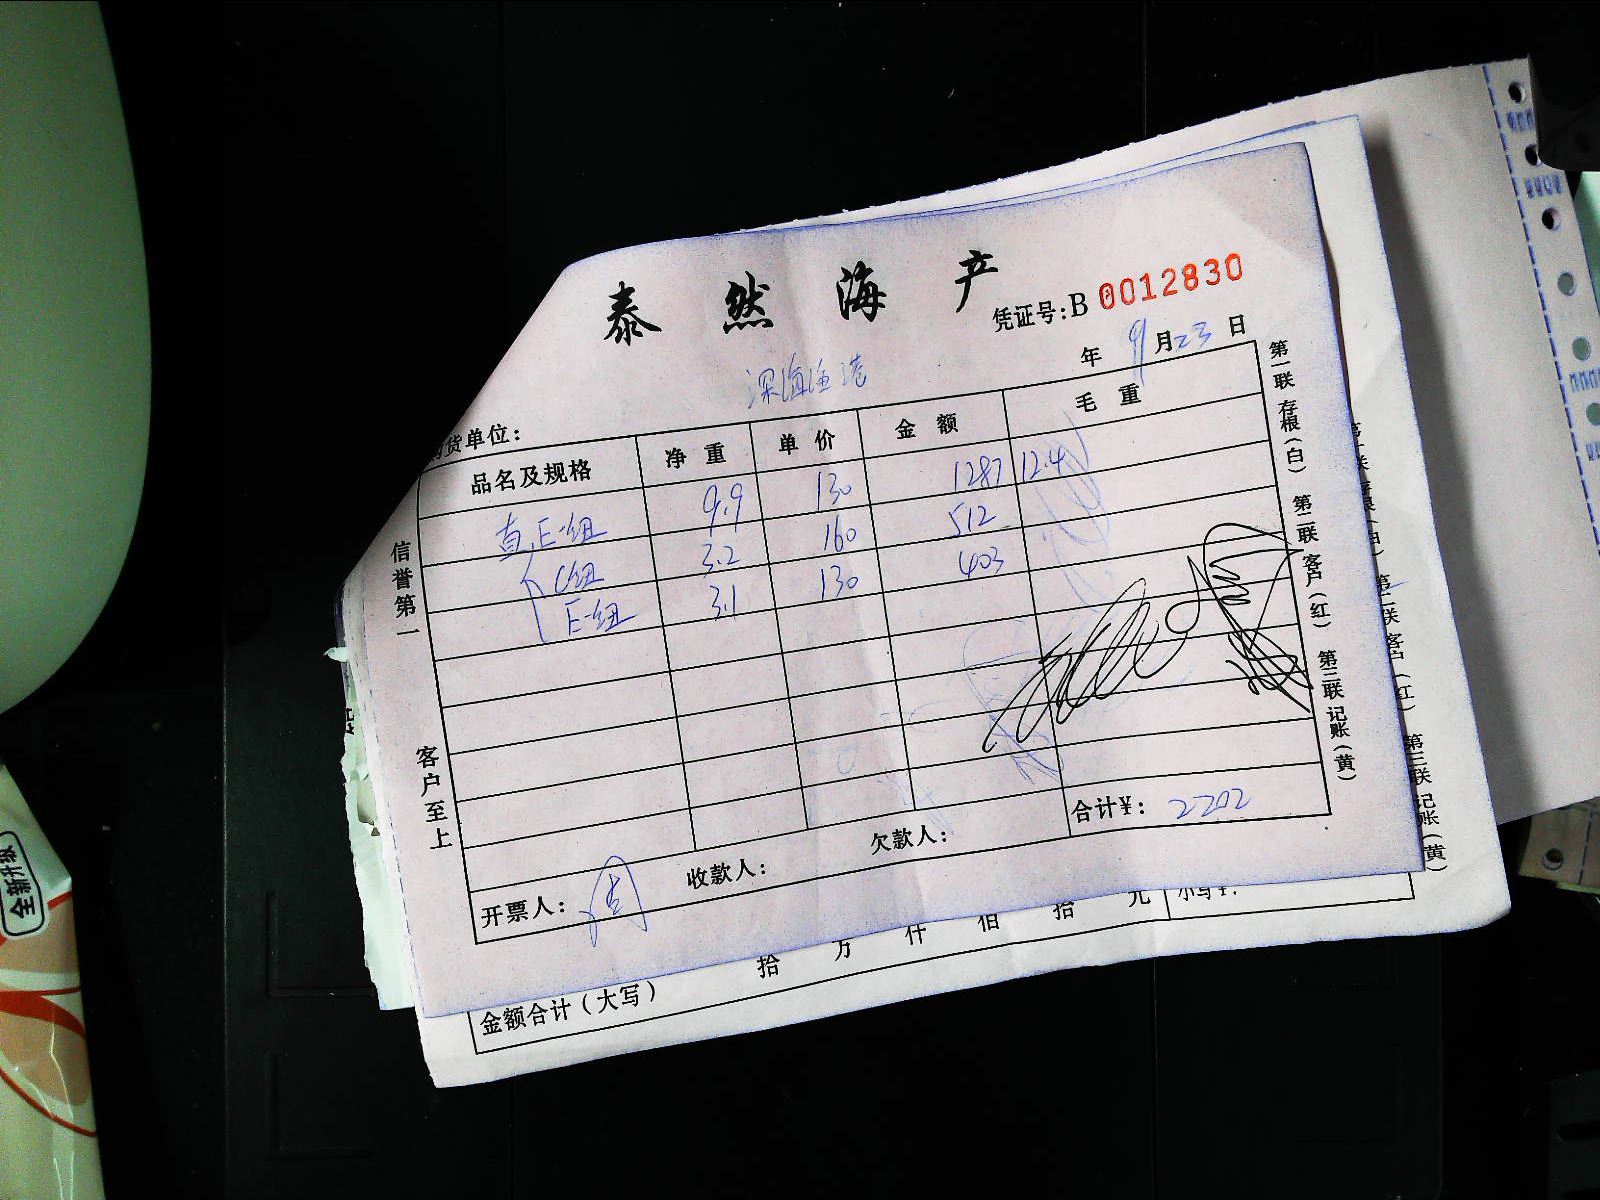 泰然海产
凭证号:B 0012830
年 9 月 23 日
深海渔港
货单位:
品名及规格 净重 单价 金额 毛重
直,E-组 9.9 130 1287 12.4
C组 3.2 160 512
E-组 3.1 130 403
合计¥: 2202
开票人: 周 收款人: 欠款人:
信誉第一 客户至上
第一联 存根(白) 第二联 客户(红) 第三联 记账(黄)
第二联 客户(红) 第三联 记账(黄)
拾 万 仟 佰 拾 元 小写¥:
金额合计(大写)
全新升级